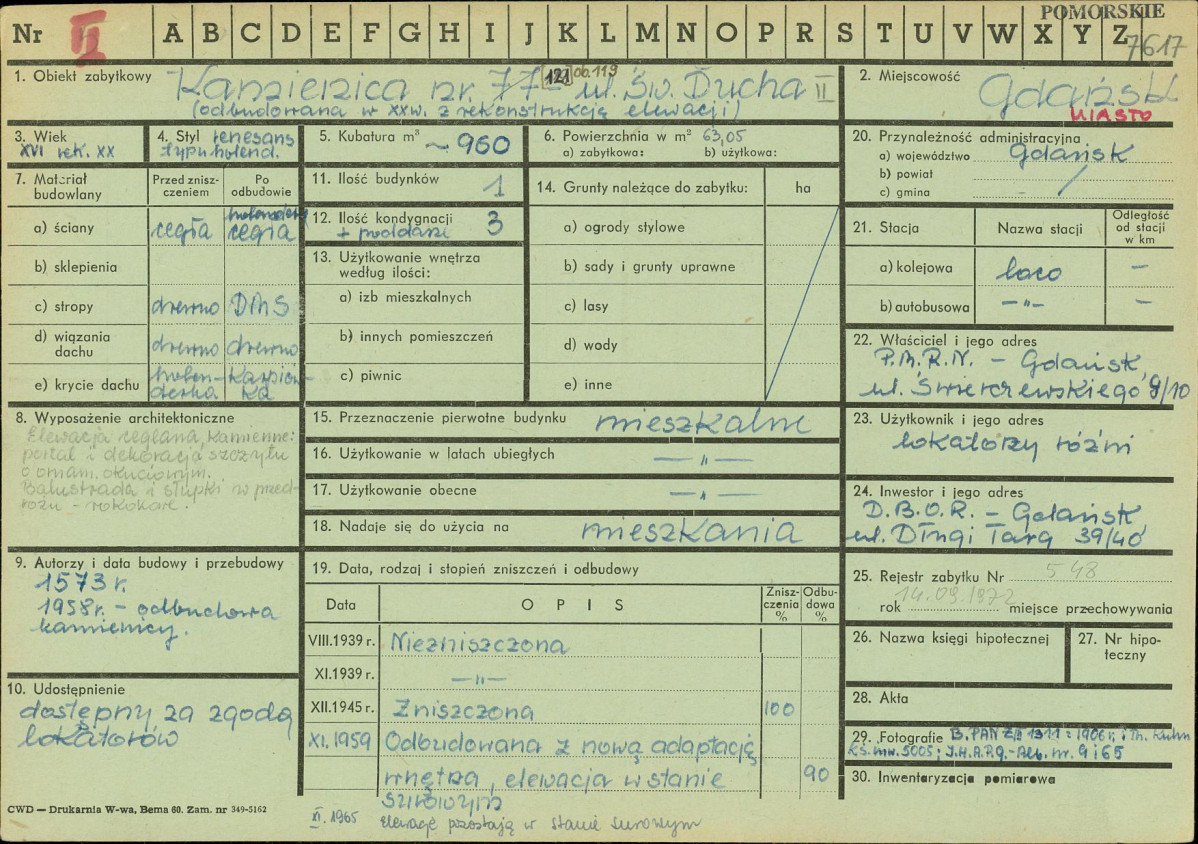 POMORSKIE
Nr II A B C D E F G H I J K L M N O P R S T U V W X Y Z
7617
1. Obiekt zabytkowy Kamienica nr. 77 121 ob. 119 ul. Św. Ducha II
(odbudowana w XX w. z rekonstrukcją elewacji)
2. Miejscowość Gdańsk
MIASTO
3. Wiek
XVI rek. XX
4. Styl renesans
typu holend.
5. Kubatura m³ ~ 960
6. Powierzchnia w m² 63,05
a) zabytkowa: b) użytkowa:
7. Materiał budowlany
Przed zniszczeniem
Po odbudowie
a) ściany cegła cegła
b) sklepienia
c) stropy drewno DMS
d) wiązania dachu drewno drewno
e) krycie dachu holenderka karpiówka
8. Wyposażenie architektoniczne
Elewacja ceglana, kamienne:
portal i dekoracja szczytu
o ornam. okuciowym.
Balustrada i słupki w przed-
prożu - rokokowe.
9. Autorzy i data budowy i przebudowy
1573 r.
1958 r. - odbudowa
kamienicy.
10. Udostępnienie
dostępny za zgodą
lokatorów
CWD — Drukarnia W-wa, Bema 60. Zam. nr 349-5162
11. Ilość budynków 1
12. Ilość kondygnacji 3
+ poddasze
13. Użytkowanie wnętrza
według ilości:
a) izb mieszkalnych
b) innych pomieszczeń
c) piwnic
14. Grunty należące do zabytku: ha
a) ogrody stylowe
b) sady i grunty uprawne
c) lasy
d) wody
e) inne
15. Przeznaczenie pierwotne budynku mieszkalne
16. Użytkowanie w latach ubiegłych — „ —
17. Użytkowanie obecne — „ —
18. Nadaje się do użycia na mieszkania
19. Data, rodzaj i stopień zniszczeń i odbudowy
Data OPIS Zniszczenia % Odbudowa %
VIII.1939 r. Niezniszczona
XI.1939 r. — „ —
XII.1945 r. Zniszczona 100
XI.1959 Odbudowana z nową adaptacją
wnętrza, elewacja w stanie 90
surowym
XI. 1965 elewacje pozostają w stanie surowym
20. Przynależność administracyjna
a) województwo Gdańsk
b) powiat /
c) gmina
21. Stacja Nazwa stacji Odległość od stacji w km
a) kolejowa loco —
b) autobusowa — „ — —
22. Właściciel i jego adres
P.M.R.N. - Gdańsk,
ul. Świerczewskiego 8/10
23. Użytkownik i jego adres
lokatorzy różni
24. Inwestor i jego adres
D.B.O.R. - Gdańsk
ul. Długi Targ 39/40
25. Rejestr zabytku Nr 548
rok 14.09.1972 miejsce przechowywania
26. Nazwa księgi hipotecznej
27. Nr hipoteczny
28. Akta
29. Fotografie B. PAN 1311 z 1906 r.; Th. Kuhn
KŚ. inw. 5005; I.H.A.P.G.-Alb. nr. 9 i 65
30. Inwentaryzacja pomiarowa